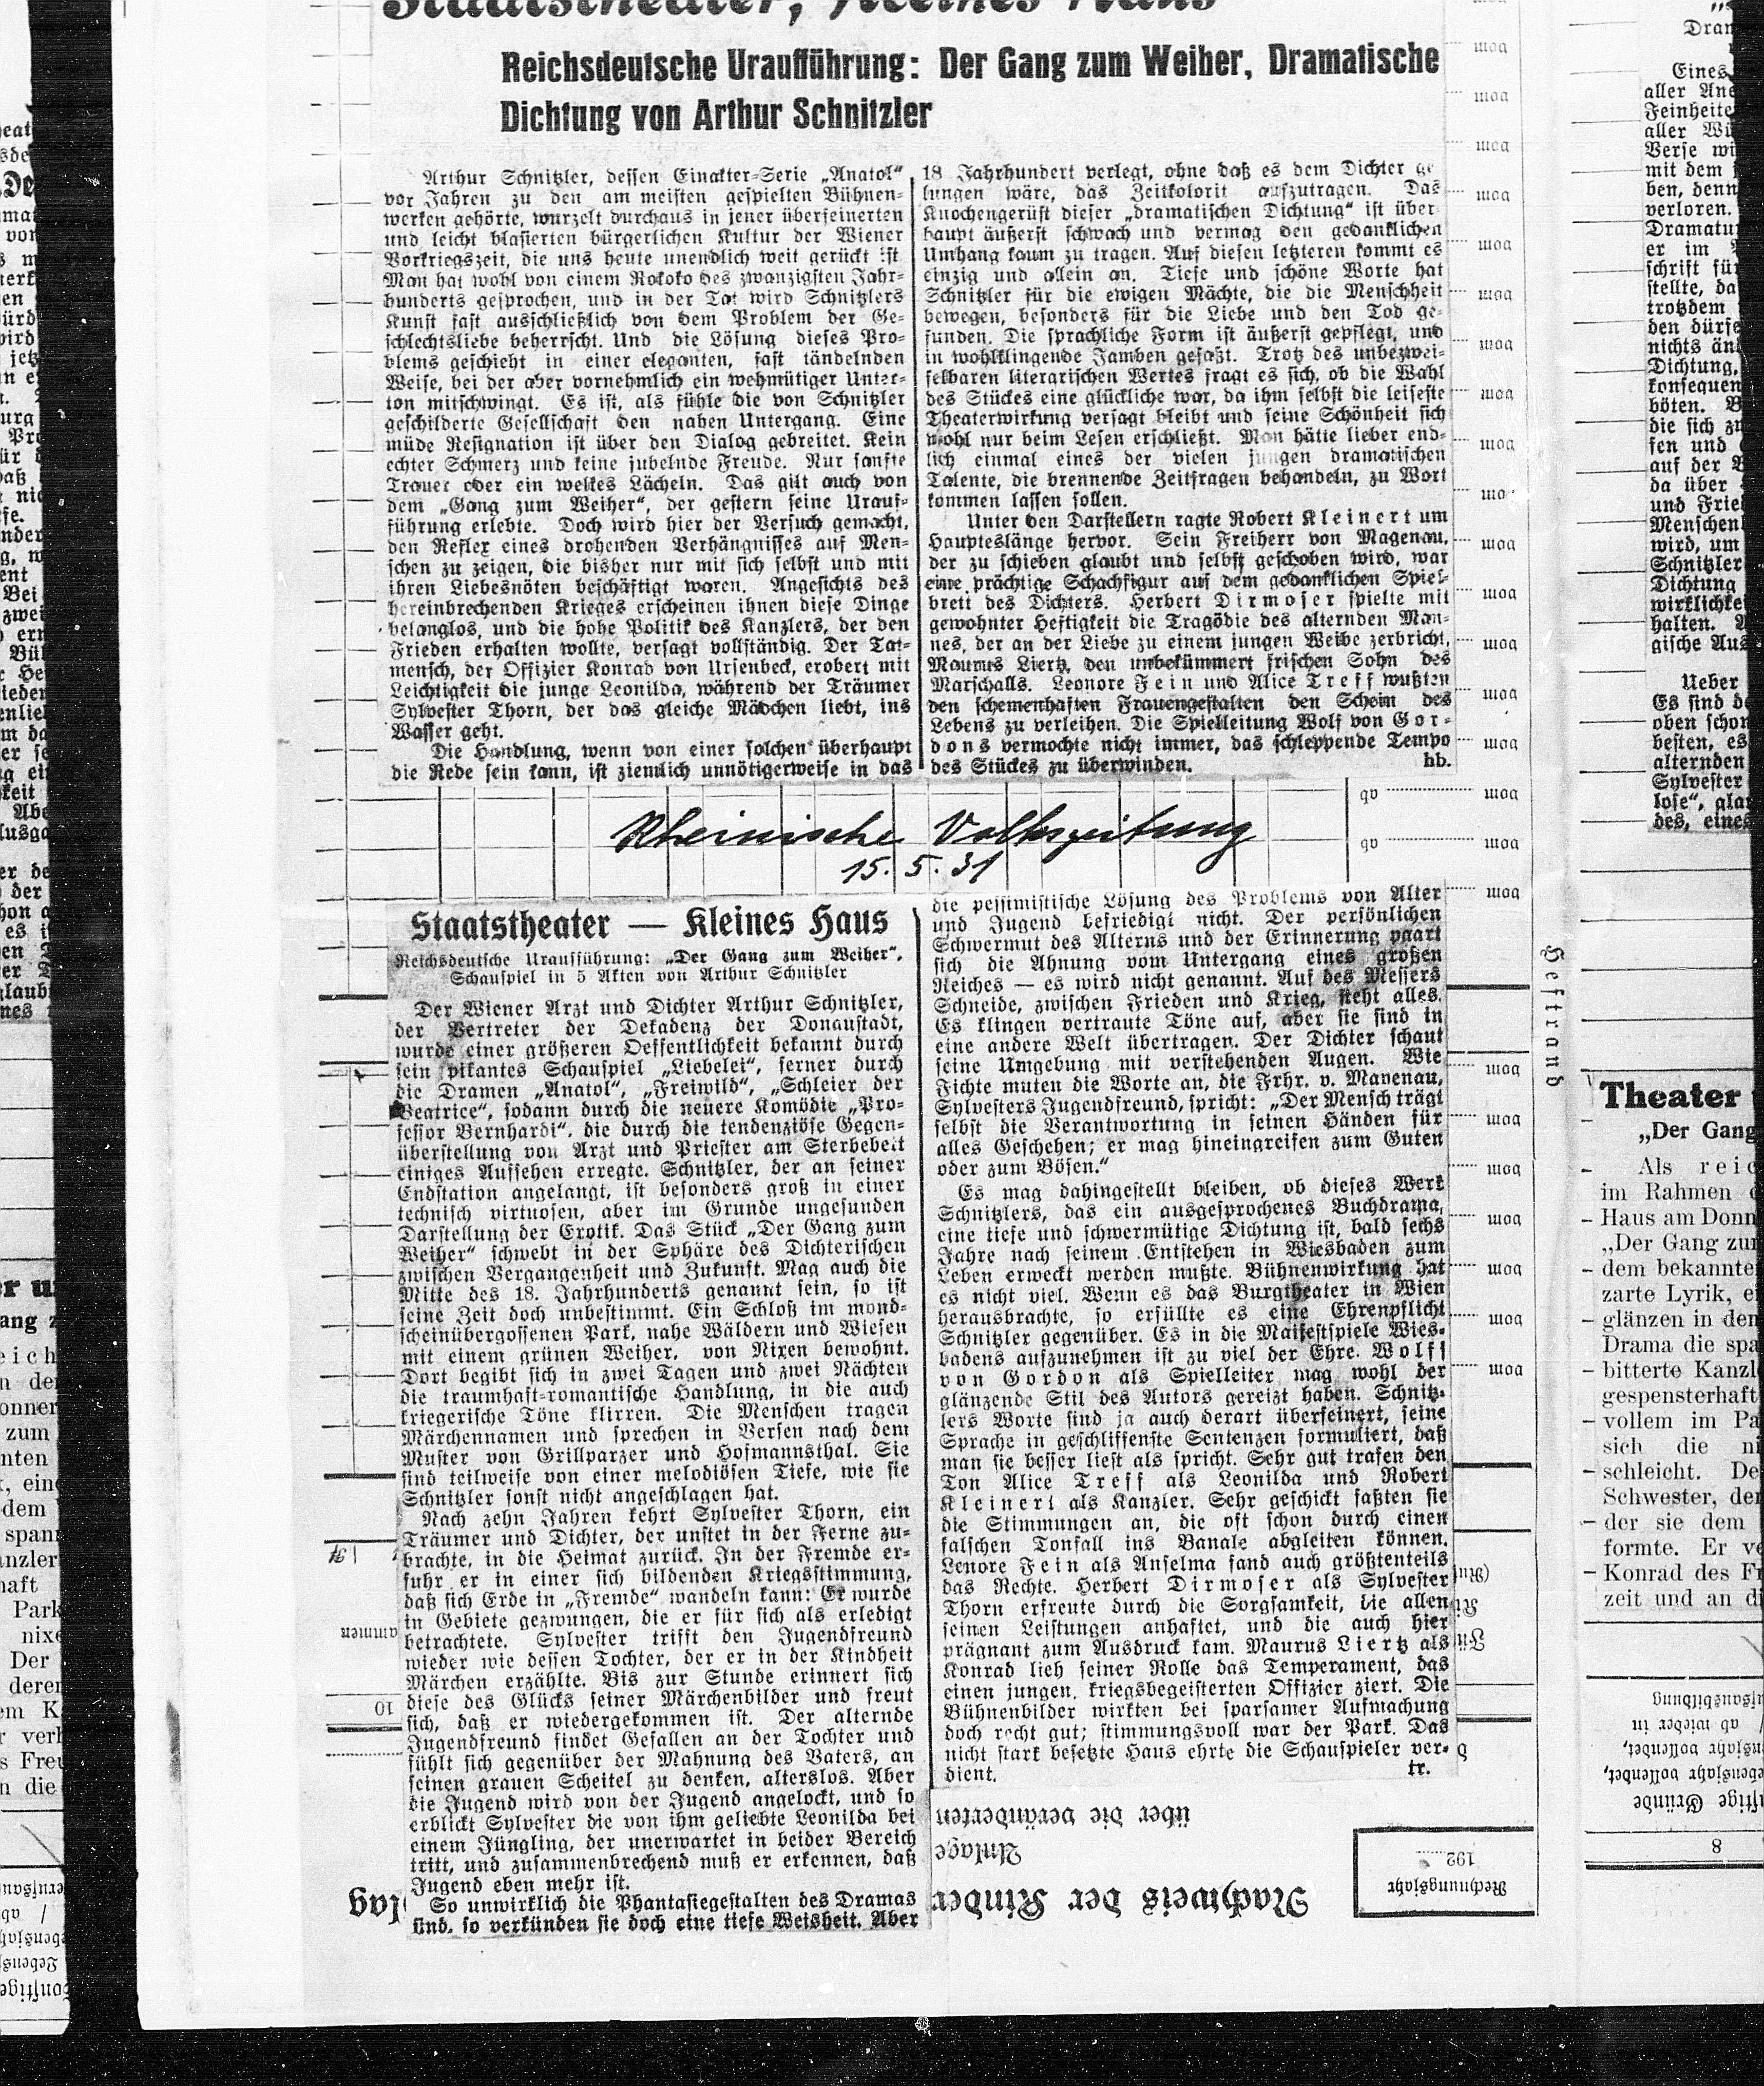 Staatstheater, Kleines Haus
Reichsdeutsche Uraufführung: Der Gang zum Weiher, Dramatische
Dichtung von Arthur Schnitzler
Arthur Schnitzler, dessen Einakter-Serie „Anatol“
vor Jahren zu den am meisten gespielten Bühnen-
werken gehörte, wurzelt durchaus in jener überfeinerten
und leicht blasierten bürgerlichen Kultur der Wiener
Vorkriegszeit, die uns heute unendlich weit gerückt ist.
Man hat wohl von einem Rokoko des zwanzigsten Jahr-
hunderts gesprochen, und in der Tat wird Schnitzlers
Kunst fast ausschließlich von dem Problem der Ge-
schlechtsliebe beherrscht. Und die Lösung dieses Pro-
blems geschieht in einer eleganten, fast tändelnden
Weise, bei der aber vornehmlich ein wehmütiger Unter-
ton mitschwingt. Es ist, als fühle die von Schnitzler
geschilderte Gesellschaft den nahen Untergang. Eine
müde Resignation ist über den Dialog gebreitet. Kein
echter Schmerz und keine jubelnde Freude. Nur sanfte
Trauer oder ein welkes Lächeln. Das gilt auch von
dem „Gang zum Weiher“, der gestern seine Urauf-
führung erlebte. Doch wird hier der Versuch gemacht,
den Reflex eines drohenden Verhängnisses auf Men-
schen zu zeigen, die bisher nur mit sich selbst und mit
ihren Liebesnöten beschäftigt waren. Angesichts des
hereinbrechenden Krieges erscheinen ihnen diese Dinge
belanglos, und die hohe Politik des Kanzlers, der den
Frieden erhalten wollte, versagt vollständig. Der Tat-
mensch, der Offizier Konrad von Ursenbeck, erobert mit
Leichtigkeit die junge Leonilda, während der Träumer
Sylvester Thorn, der das gleiche Mädchen liebt, ins
Wasser geht.
Die Handlung, wenn von einer solchen überhaupt
die Rede sein kann, ist ziemlich unnötigerweise in das
18 Jahrhundert verlegt, ohne daß es dem Dichter ge
lungen wäre, das Zeitkolorit aufzutragen. Das
Knochengerüst dieser „dramatischen Dichtung“ ist über-
haupt äußerst schwach und vermag den gedanklichen
Umhang kaum zu tragen. Auf diesen letzteren kommt es
einzig und allein an. Tiefe und schöne Worte hat
Schnitzler für die ewigen Mächte, die die Menschheit
bewegen, besonders für die Liebe und den Tod ge-
funden. Die sprachliche Form ist äußerst gepflegt, und
in wohlklingende Jamben gefaßt. Trotz des unbezwei-
felbaren literarischen Wertes fragt es sich, ob die Wahl
des Stückes eine glückliche war, da ihm selbst die leiseste
Theaterwirkung versagt bleibt und seine Schönheit sich
wohl nur beim Lesen erschließt. Man hätte lieber end-
lich einmal eines der vielen jungen dramatischen
Talente, die brennende Zeitfragen behandeln, zu Wort
kommen lassen sollen.
Unter den Darstellern ragte Robert Kleinert um
Haupteslänge hervor. Sein Freiherr von Magenau,
der zu schieben glaubt und selbst geschoben wird, war
eine prächtige Schachfigur auf dem gedanklichen Spiel-
brett des Dichters. Herbert Dirmoser spielte mit
gewohnter Heftigkeit die Tragödie des alternden Man-
nes, der an der Liebe zu einem jungen Weibe zerbricht,
Maurus Liertz, den unbekümmert frischen Sohn des
Marschalls. Leonore Fein und Alice Treff wußten
den schemenhaften Frauengestalten den Schein des
Lebens zu verleihen. Die Spielleitung Wolf von Gor-
dons vermochte nicht immer, das schleppende Tempo
des Stückes zu überwinden. hb.
Rheinische Volkszeitung
15. 5. 31
Staatstheater — Kleines Haus
Reichsdeutsche Uraufführung: „Der Gang zum Weiher“,
Schauspiel in 5 Akten von Arthur Schnitzler
Der Wiener Arzt und Dichter Arthur Schnitzler,
der Vertreter der Dekadenz der Donaustadt,
wurde einer größeren Oeffentlichkeit bekannt durch
sein pikantes Schauspiel „Liebelei“, ferner durch
die Dramen „Anatol“, „Freiwild“, „Schleier der
Beatrice“, sodann durch die neuere Komödie „Pro-
fessor Bernhardi“, die durch die tendenziöse Gegen-
überstellung von Arzt und Priester am Sterbebett
einiges Aufsehen erregte. Schnitzler, der an seiner
Endstation angelangt, ist besonders groß in einer
technisch virtuosen, aber im Grunde ungesunden
Darstellung der Erotik. Das Stück „Der Gang zum
Weiher“ schwebt in der Sphäre des Dichterischen
zwischen Vergangenheit und Zukunft. Mag auch die
Mitte des 18. Jahrhunderts genannt sein, so ist
seine Zeit doch unbestimmt. Ein Schloß im mond-
scheinübergossenen Park, nahe Wäldern und Wiesen
mit einem grünen Weiher, von Nixen bewohnt.
Dort begibt sich in zwei Tagen und zwei Nächten
die traumhaft-romantische Handlung, in die auch
kriegerische Töne klirren. Die Menschen tragen
Märchennamen und sprechen in Versen nach dem
Muster von Grillparzer und Hofmannsthal. Sie
sind teilweise von einer melodiösen Tiefe, wie sie
Schnitzler sonst nicht angeschlagen hat.
Nach zehn Jahren kehrt Sylvester Thorn, ein
Träumer und Dichter, der unstet in der Ferne zu-
brachte, in die Heimat zurück. In der Fremde er-
fuhr er in einer sich bildenden Kriegsstimmung,
daß sich Erde in „Fremde“ wandeln kann: Er wurde
in Gebiete gezwungen, die er für sich als erledigt
betrachtete. Sylvester trifft den Jugendfreund
wieder wie dessen Tochter, der er in der Kindheit
Märchen erzählte. Bis zur Stunde erinnert sich
diese des Glücks seiner Märchenbilder und freut
sich, daß er wiedergekommen ist. Der alternde
Jugendfreund findet Gefallen an der Tochter und
fühlt sich gegenüber der Mahnung des Vaters, an
seinen grauen Scheitel zu denken, alterslos. Aber
die Jugend wird von der Jugend angelockt, und so
erblickt Sylvester die von ihm geliebte Leonilda bei
einem Jüngling, der unerwartet in beider Bereich
tritt, und zusammenbrechend muß er erkennen, daß
Jugend eben mehr ist.
So unwirklich die Phantasiegestalten des Dramas
sind, so verkünden sie doch eine tiefe Weisheit. Aber
die pessimistische Lösung des Problems von Alter
und Jugend befriedigt nicht. Der persönlichen
Schwermut des Alterns und der Erinnerung paart
sich die Ahnung vom Untergang eines großen
Reiches — es wird nicht genannt. Auf des Messers
Schneide, zwischen Frieden und Krieg, steht alles.
Es klingen vertraute Töne auf, aber sie sind in
eine andere Welt übertragen. Der Dichter schaut
seine Umgebung mit verstehenden Augen. Wie
Fichte muten die Worte an, die Frhr. v. Mayenau,
Sylvesters Jugendfreund, spricht: „Der Mensch trägt
selbst die Verantwortung in seinen Händen für
alles Geschehen; er mag hineingreifen zum Guten
oder zum Bösen.“
Es mag dahingestellt bleiben, ob dieses Werk
Schnitzlers, das ein ausgesprochenes Buchdrama,
eine tiefe und schwermütige Dichtung ist, bald sechs
Jahre nach seinem Entstehen in Wiesbaden zum
Leben erweckt werden mußte. Bühnenwirkung hat
es nicht viel. Wenn es das Burgtheater in Wien
herausbrachte, so erfüllte es eine Ehrenpflicht
Schnitzler gegenüber. Es in die Maifestspiele Wies-
badens aufzunehmen ist zu viel der Ehre. Wolff
von Gordon als Spielleiter mag wohl der
glänzende Stil des Autors gereizt haben. Schnitz-
lers Worte sind ja auch derart überfeinert, seine
Sprache in geschliffenste Sentenzen formuliert, daß
man sie besser liest als spricht. Sehr gut trafen den
Ton Alice Treff als Leonilda und Robert
Kleinert als Kanzler. Sehr geschickt faßten sie
die Stimmungen an, die oft schon durch einen
falschen Tonfall ins Banale abgleiten können.
Lenore Fein als Anselma fand auch größtenteils
das Rechte. Herbert Dirmoser als Sylvester
Thorn erfreute durch die Sorgsamkeit, die allen
seinen Leistungen anhaftet, und die auch hier
prägnant zum Ausdruck kam. Maurus Liertz als
Konrad lieh seiner Rolle das Temperament, das
einen jungen, kriegsbegeisterten Offizier ziert. Die
Bühnenbilder wirkten bei sparsamer Aufmachung
doch recht gut; stimmungsvoll war der Park. Das
nicht stark besetzte Haus ehrte die Schauspieler ver-
dient. tr.
Heftrand
Nachweis der Kinder
Anlage
über die veränderten
Rechnungsjahr
192
Theater
„Der Gang
Als reic
im Rahmen
Haus am Donn
„Der Gang zum
dem bekannte
zarte Lyrik, e
glänzen in den
Drama die spa
bitterte Kanzl
gespensterhaft
vollem im Pa
sich die ni
schleicht. De
Schwester, der
der sie dem
formte. Er ve
Konrad des Fr
zeit und an di